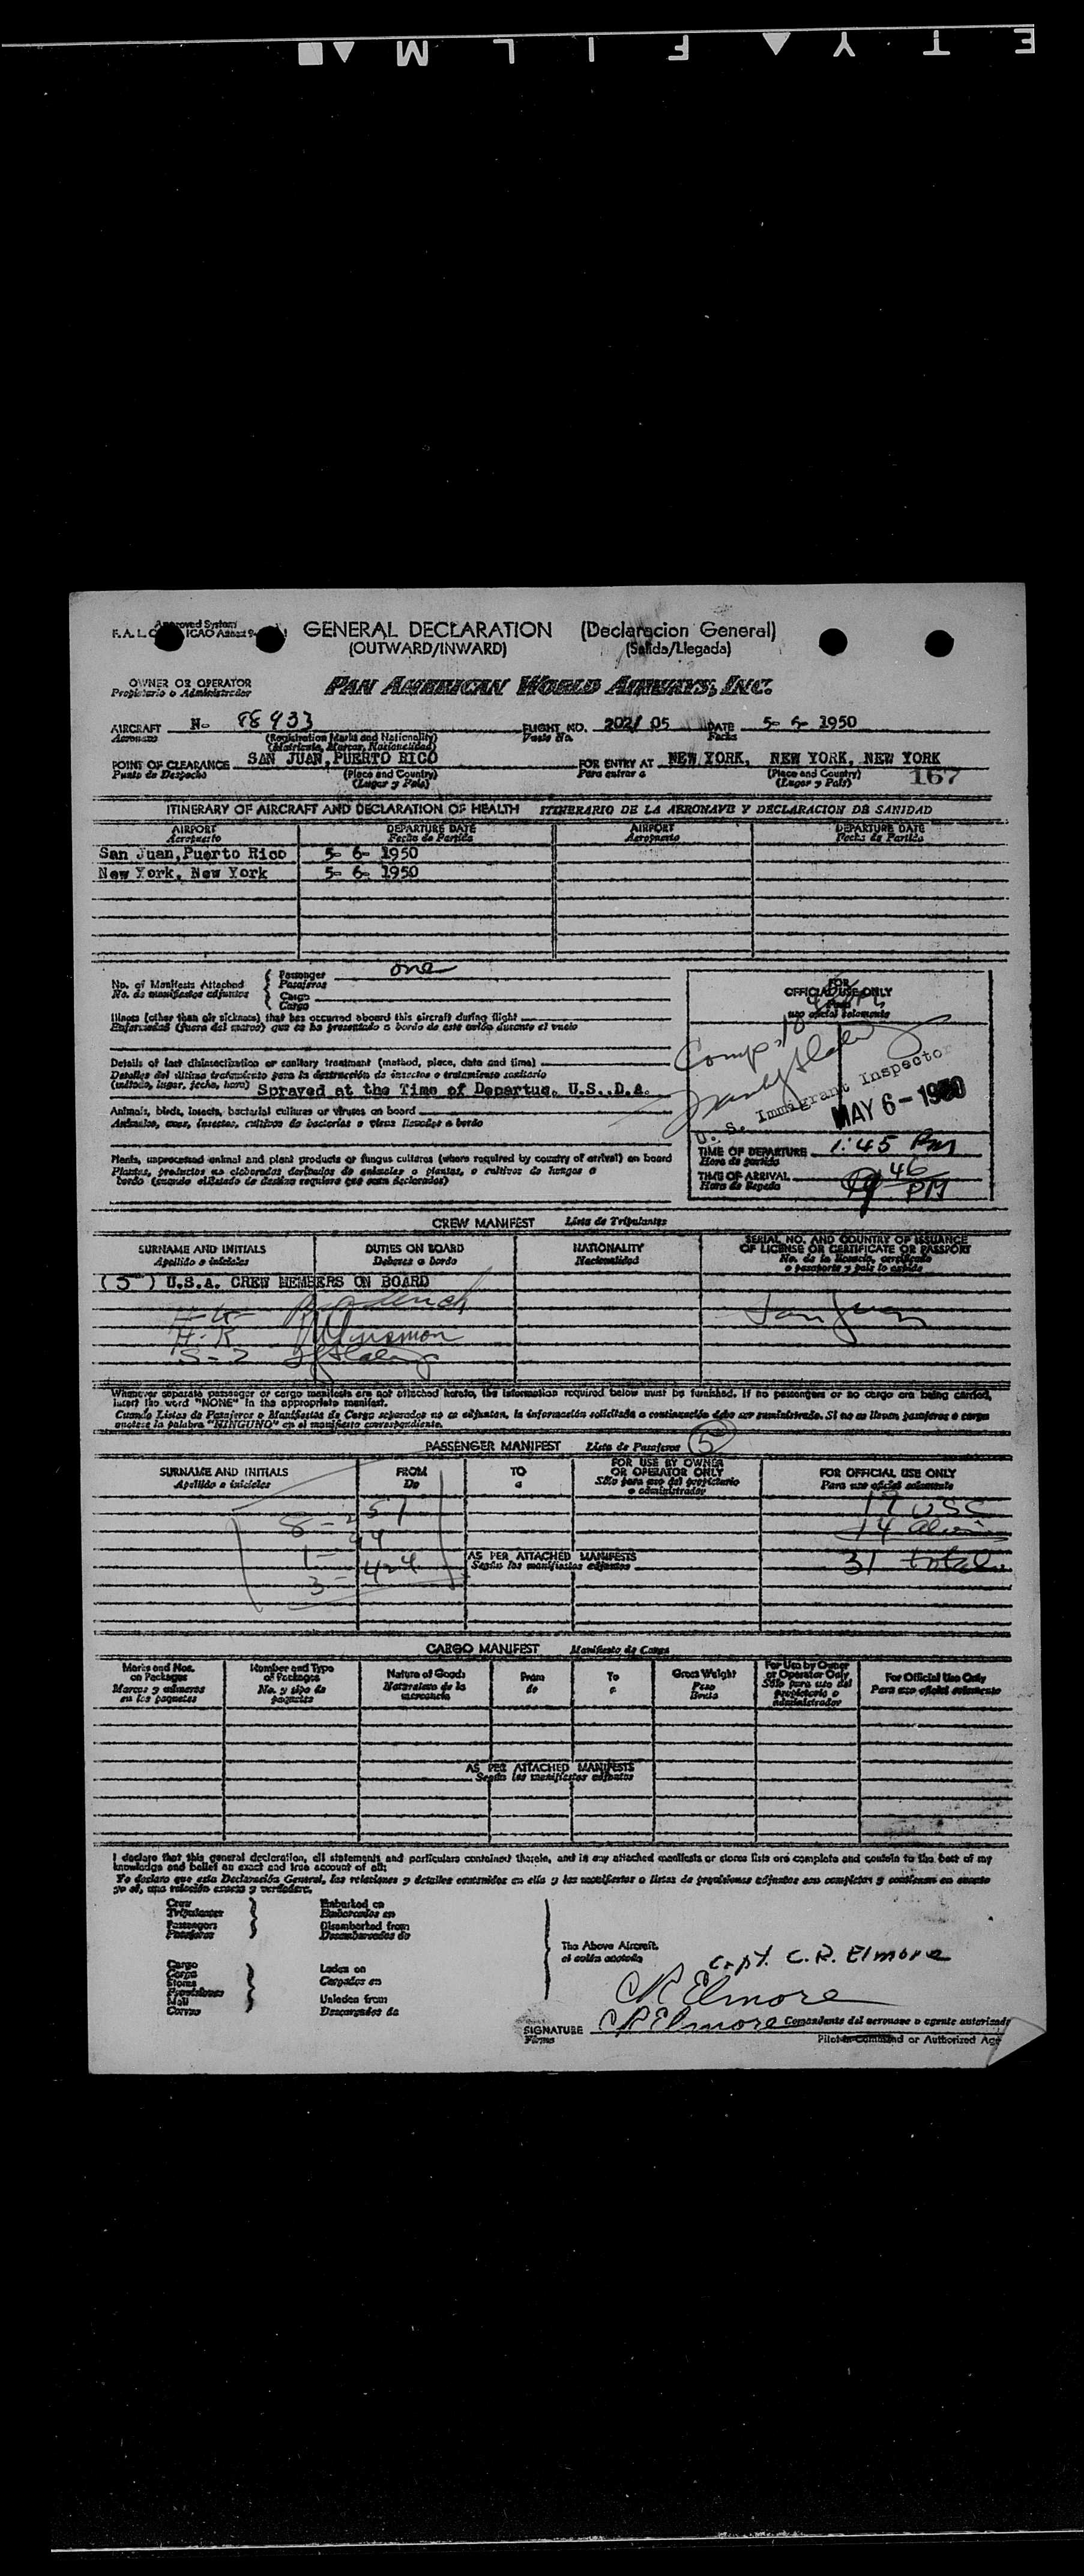 E T Y F I L M
Approved System
F. A. L. ICAO Annex 9
GENERAL DECLARATION (Declaracion General)
(OUTWARD/INWARD) (Salida/Llegada)
OWNER OR OPERATOR
Propietario o Administrador
PAN AMERICAN WORLD AIRWAYS, INC.
AIRCRAFT N- 88933 FLIGHT NO. 202/ 05 DATE 5- 6- 1950
Aeronave (Registration Marks and Nationality) Vuelo No. Fecha
(Matricula, Marcas, Nacionalidad)
POINT OF CLEARANCE SAN JUAN, PUERTO RICO FOR ENTRY AT NEW YORK, NEW YORK, NEW YORK
Punto de Despacho (Place and Country) Para entrar a (Place and Country) 167
(Lugar y Pais) (Lugar y Pais)
ITINERARY OF AIRCRAFT AND DECLARATION OF HEALTH ITINERARIO DE LA AERONAVE Y DECLARACION DE SANIDAD
AIRPORT DEPARTURE DATE AIRPORT DEPARTURE DATE
Aeropuerto Fecha de Partida Aeropuerto Fecha de Partida
San Juan, Puerto Rico 5- 6- 1950
New York, New York 5- 6- 1950
No. of Manifests Attached Passenger one
No. de manifiestos adjuntos Pasajeros
Cargo
Cargo
FOR
OFFICIAL USE ONLY
uso oficial solamente
Illness (other than air sickness) that has occurred aboard this aircraft during flight
Enfermedad (fuera del mareo) que se ha presentado a bordo de este avión durante el vuelo
Details of last disinsectization or sanitary treatment (method, place, date and time)
Detalles del último tratamiento para la destrucción de insectos o tratamiento sanitario
(método, lugar, fecha, hora) Sprayed at the Time of Departue. U.S..D.A.
Animals, birds, insects, bacterial cultures or viruses on board
Animales, aves, insectos, cultivos de bacterias o virus llevados a bordo
U. S. Immigrant Inspector
MAY 6 - 1950
Plants, unprocessed animal and plant products or fungus cultures (where required by country of arrival) on board
Plantas, productos no elaborados derivados de animales o plantas, o cultivos de hongos a
bordo (cuando el Estado de destino requiera que sean declarados)
TIME OF DEPARTURE 1:45 PM
Hora de partida
TIME OF ARRIVAL 46 PM
Hora de llegada
CREW MANIFEST Lista de Tripulantes
SURNAME AND INITIALS DUTIES ON BOARD NATIONALITY SERIAL NO. AND COUNTRY OF ISSUANCE
Apellido e iniciales Deberes a bordo Nacionalidad OF LICENSE OR CERTIFICATE OR PASSPORT
No. de la licencia, certificado
o pasaporte y pais lo expide
(5) U.S.A. CREW MEMBERS ON BOARD
San Juan
Whenever separate passenger or cargo manifests are not attached hereto, the information required below must be furnished. If no passengers or no cargo are being carried,
insert the word "NONE" in the appropriate manifest.
Cuando Listas de Pasajeros o Manifiestos de Carga separados no se adjuntan, la información solicitada a continuación debe ser suministrada. Si no se llevan pasajeros o carga
anotese la palabra "NINGUNO" en el manifiesto correspondiente.
PASSENGER MANIFEST Lista de Pasajeros 5
SURNAME AND INITIALS FROM TO FOR USE BY OWNER FOR OFFICIAL USE ONLY
Apellido e iniciales De a OR OPERATOR ONLY Para uso oficial solamente
Sólo para uso del propietario
o administrador
17 USC
8 = 251
14 aliens
1 = 44
AS PER ATTACHED MANIFESTS 31 total
Según los manifiestos adjuntos
3 = 424
CARGO MANIFEST Manifiesto de Carga
Marks and Nos. Number and Type Nature of Goods From To Gross Weight For Use by Owner For Official Use Only
on Packages of Packages Naturaleza de la de a Peso or Operator Only Para uso oficial solamente
Marcas y números No. y tipo de mercancia Bruto Sólo para uso del
en los paquetes paquetes propietario o
administrador
AS PER ATTACHED MANIFESTS
Según los manifiestos adjuntos
I declare that this general declaration, all statements and particulars contained therein, and in any attached manifests or stores lists are complete and contain to the best of my
knowledge and belief an exact and true account of all:
Yo declaro que esta Declaración General, las relaciones y detalles contenidos en ella y los manifiestos o listas de provisiones adjuntos son completos y contienen en cuanto
yo sé, una relación exacta y verdadera.
Crew Embarked on
Tripulantes Embarcados en
Passengers Disembarked from
Pasajeros Desembarcados de
The Above Aircraft.
el avión anotado
Capt. C. R. Elmore
Cargo Laden on
Carga Cargados en
Stores
Provisiones
Mail Unladen from
Correo Descargados de
CR Elmore
SIGNATURE CR Elmore Comandante del aeronave o agente autorizado
Firma Pilot in Command or Authorized Age